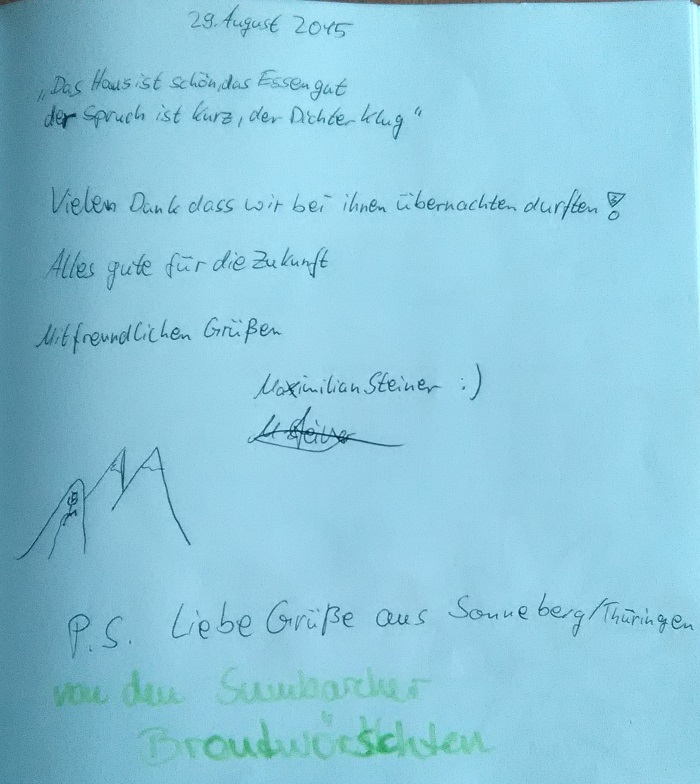 29. August 2015
„Das Haus ist schön, das Essen gut
der Spruch ist kurz, der Dichter klug“
Vielen Dank dass wir bei ihnen übernachten durften!
Alles gute für die Zukunft
Mit freundlichen Grüßen
Maximilian Steiner :)
M. Steiner
P.S. Liebe Grüße aus Sonneberg/Thüringen
von den Sumbarcher
Broudwörschten